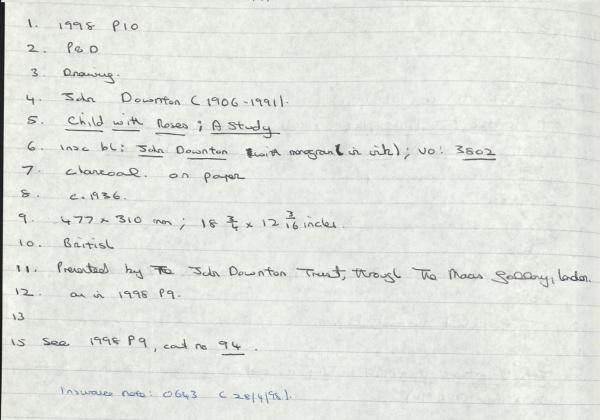 1. 1998 P10
2. P&D
3. Drawing.
4. John Downton (1906-1991).
5. Child with Roses; A Study
6. insc bl: John Downton with monogram (in ink); vo: 3502
7. charcoal. on paper
8. c.1936.
9. 477 x 310 mm; 18 3/4 x 12 3/16 inches.
10. British
11. Presented by The John Downton Trust, through The Maas Gallery, London.
12. as in 1998 P9.
13
15 See 1998 P9, cat no 94.
Insurance note: 0643 (28/4/98).